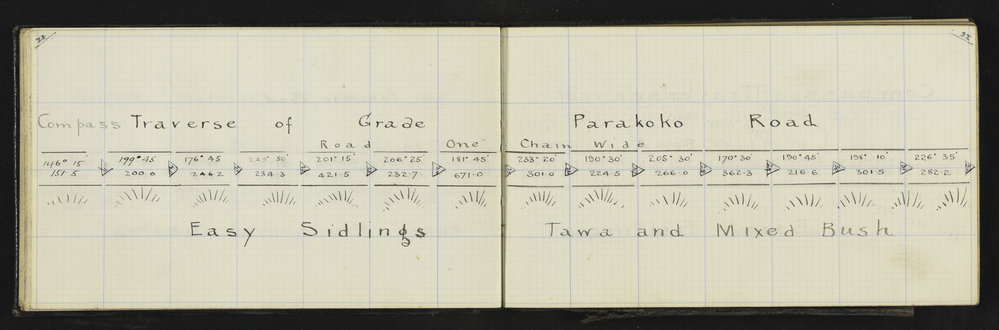 Compass Traverse of Grade Parakoko Road
Road One Chain Wide
146° 15' 199° 45' 176° 45 201° 15' 206° 25' 181° 45' 233° 20' 190° 30' 205° 30' 170° 30' 190° 45' 198° 10' 226° 35'
151.5 200.0 246.2 234.3 421.5 232.7 671.0 301.0 224.5 266.0 362.3 216.6 301.5 282.2
Easy Sidlings Tawa and Mixed Bush